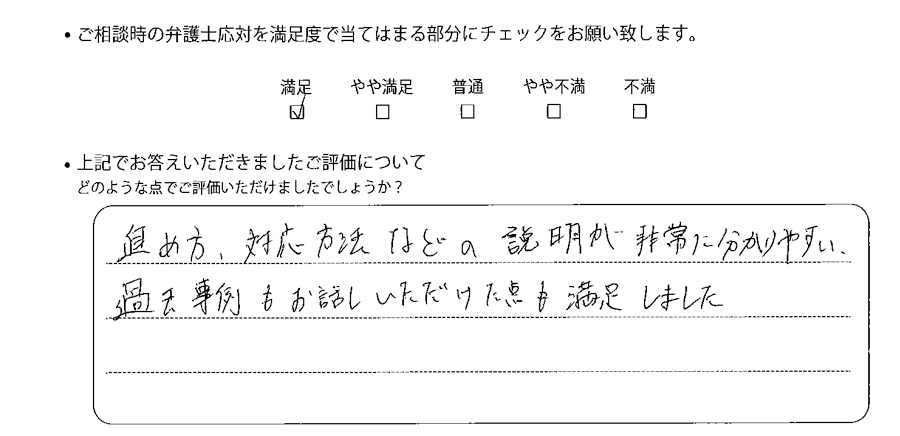 ・ご相談時の弁護士応対を満足度で当てはまる部分にチェックをお願い致します。
満足 やや満足 普通 やや不満 不満
☑ □ □ □ □
・上記でお答えいただきましたご評価について
どのような点でご評価いただけましたでしょうか？
進め方、対応方法などの説明が非常に分かりやすい、
過去事例もお話しいただけた点も満足しました